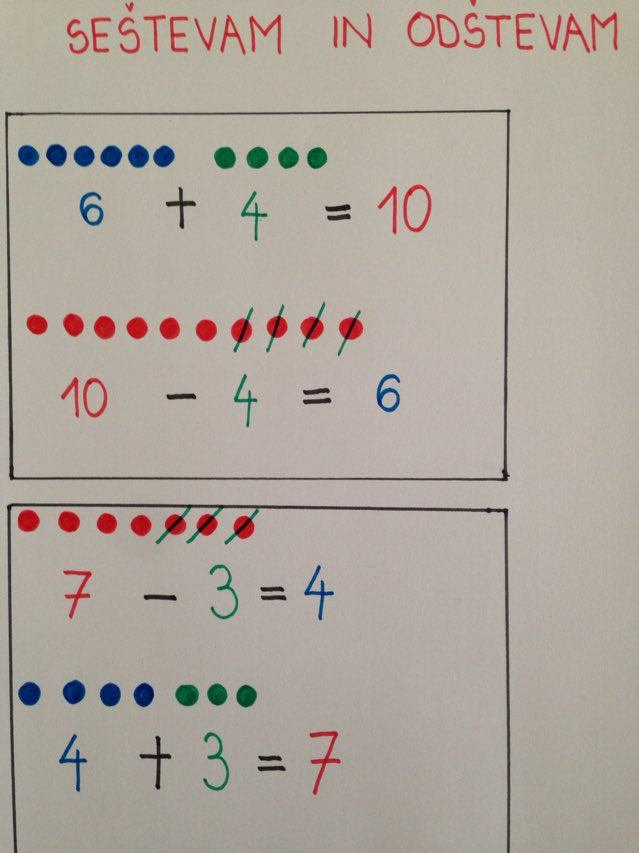 SEŠTEVAM IN ODŠTEVAM
6 + 4 = 10
10 - 4 = 6
7 - 3 = 4
4 + 3 = 7